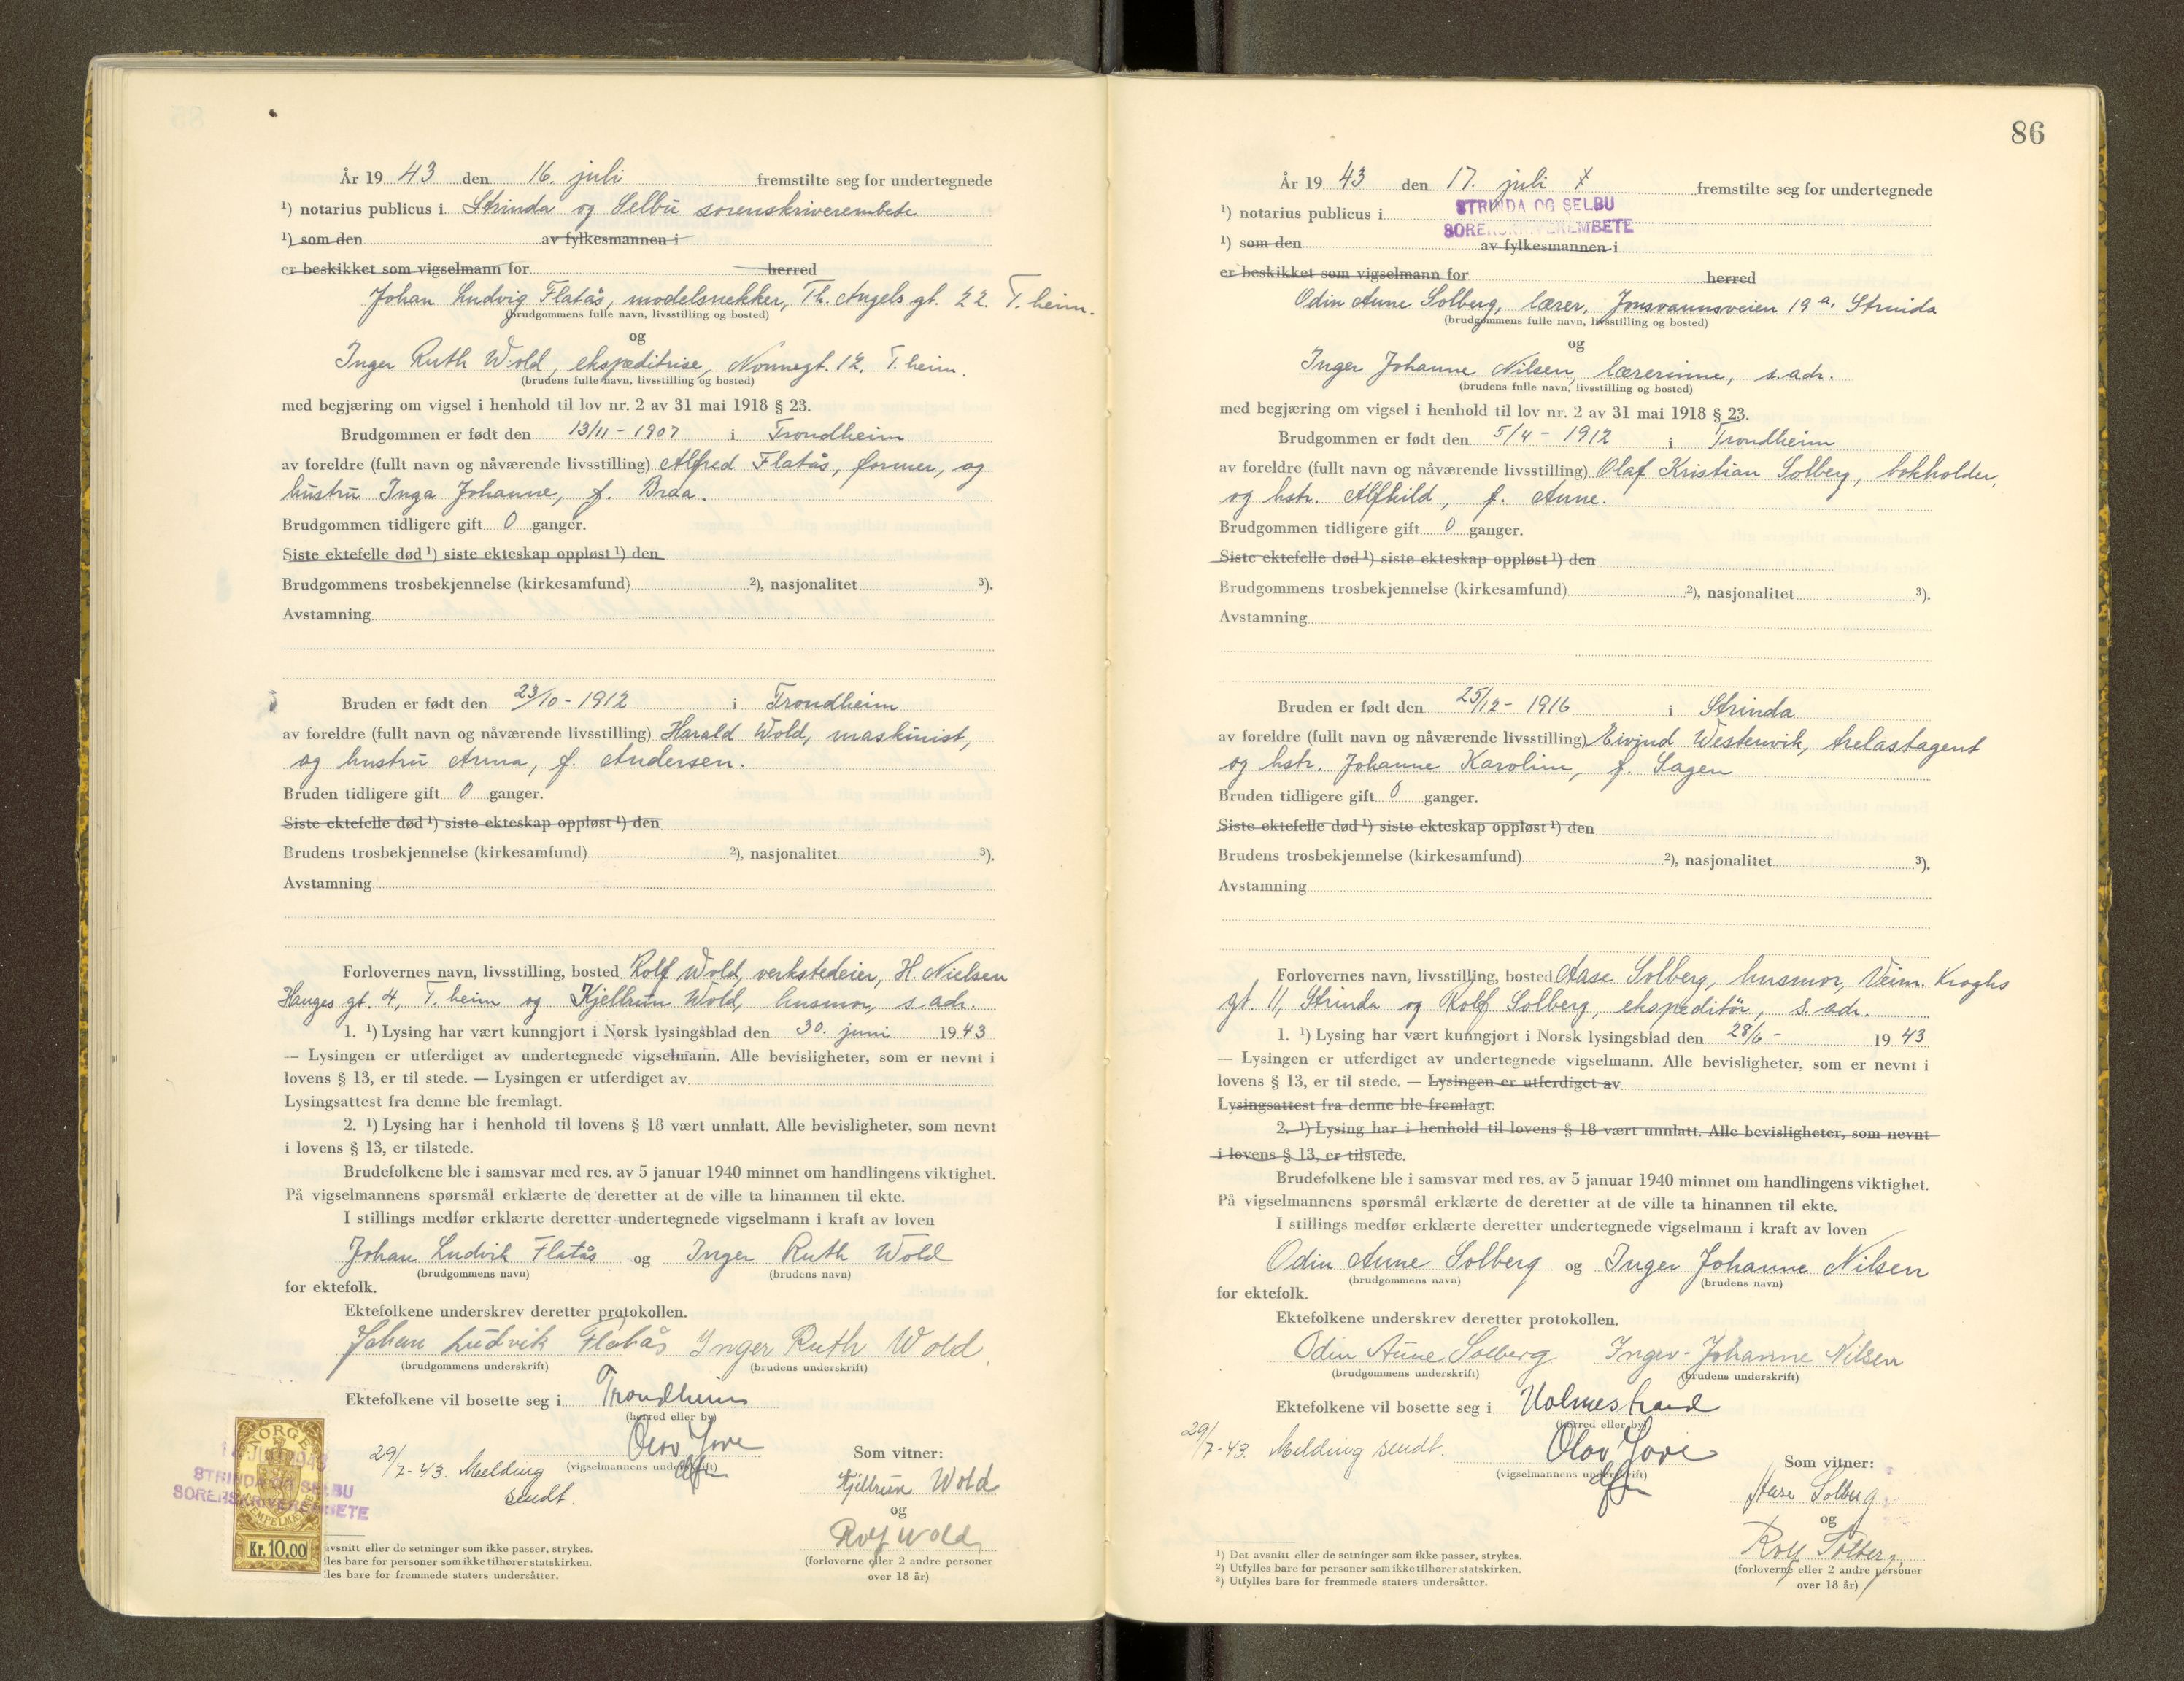 År 19 43 den 16. juli fremstilte seg for undertegnede
¹) notarius publicus i Strinda og Selbu sorenskriverembete
¹) som den av fylkesmannen i
er beskikket som vigselmann for herred
Johan Ludvig Flatås, modelsnekker, Th. Angels gt. 22. T.heim.
(brudgommens fulle navn, livsstilling og bosted)
og
Inger Ruth Wold, ekspeditrise, Nonnegt. 12. T.heim.
(brudens fulle navn, livsstilling og bosted)
med begjæring om vigsel i henhold til lov nr. 2 av 31 mai 1918 § 23.
Brudgommen er født den 13/11 - 1907 i Trondheim
av foreldre (fullt navn og nåværende livsstilling) Alfred Flatås, former, og
hustru Inga Johanne, f. Braa.
Brudgommen tidligere gift 0 ganger.
Siste ektefelle død ¹) siste ekteskap oppløst ¹) den
Brudgommens trosbekjennelse (kirkesamfund) ²), nasjonalitet ³).
Avstamning
Bruden er født den 23/10 - 1912 i Trondheim
av foreldre (fullt navn og nåværende livsstilling) Harald Wold, maskinist,
og hustru Anna, f. Andersen.
Bruden tidligere gift 0 ganger.
Siste ektefelle død ¹) siste ekteskap oppløst ¹) den
Brudens trosbekjennelse (kirkesamfund) ²), nasjonalitet ³).
Avstamning
Forlovernes navn, livsstilling, bosted Rolf Wold, verkstedeier, H. Nielsen
Hauges gt. 4, T.heim og Kjellrun Wold, husmor, s. adr.
1. ¹) Lysing har vært kunngjort i Norsk lysingsblad den 30. juni 19 43
— Lysingen er utferdiget av undertegnede vigselmann. Alle bevisligheter, som er nevnt i
lovens § 13, er til stede. — Lysingen er utferdiget av
Lysingsattest fra denne ble fremlagt.
2. ¹) Lysing har i henhold til lovens § 18 vært unnlatt. Alle bevisligheter, som nevnt
i lovens § 13, er tilstede.
Brudefolkene ble i samsvar med res. av 5 januar 1940 minnet om handlingens viktighet.
På vigselmannens spørsmål erklærte de deretter at de ville ta hinannen til ekte.
I stillings medfør erklærte deretter undertegnede vigselmann i kraft av loven
Johan Ludvik Flatås og Inger Ruth Wold
(brudgommens navn) (brudens navn)
for ektefolk.
Ektefolkene underskrev deretter protokollen.
Johan Ludvik Flatås Inger Ruth Wold
(brudgommens underskrift) (brudens underskrift)
Ektefolkene vil bosette seg i Trondheim
(herred eller by)
Olov
(vigselmannens underskrift)
29/7-43. Melding
sendt.
Som vitner:
Kjellrun Wold
og
Rolf Wold
(forloverne eller 2 andre personer
over 18 år)
NORGE
STRINDA OG SELBU
SORENSKRIVEREMBETE
Kr. 10.00
avsnitt eller de setninger som ikke passer, strykes.
lles bare for personer som ikke tilhører statskirken.
lles bare for fremmede staters undersåtter.
86
År 19 43 den 17. juli x fremstilte seg for undertegnede
¹) notarius publicus i STRINDA OG SELBU
SORENSKRIVEREMBETE
¹) som den av fylkesmannen i
er beskikket som vigselmann for herred
Odin Aune Solberg, lærer, Jonsvannsveien 19 a. Strinda
(brudgommens fulle navn, livsstilling og bosted)
og
Inger Johanne Nilsen, lærerinne, s. adr.
(brudens fulle navn, livsstilling og bosted)
med begjæring om vigsel i henhold til lov nr. 2 av 31 mai 1918 § 23.
Brudgommen er født den 5/4 - 1912 i Trondheim
av foreldre (fullt navn og nåværende livsstilling) Olaf Kristian Solberg, bokholder,
og hstr. Alfhild, f. Aune.
Brudgommen tidligere gift 0 ganger.
Siste ektefelle død ¹) siste ekteskap oppløst ¹) den
Brudgommens trosbekjennelse (kirkesamfund) ²), nasjonalitet ³).
Avstamning
Bruden er født den 25/12 - 1916 i Strinda
av foreldre (fullt navn og nåværende livsstilling) Eivind Westervik, trelastagent
og hstr. Johanne Karoline, f. Sagen
Bruden tidligere gift 0 ganger.
Siste ektefelle død ¹) siste ekteskap oppløst ¹) den
Brudens trosbekjennelse (kirkesamfund) ²), nasjonalitet ³).
Avstamning
Forlovernes navn, livsstilling, bosted Aase Solberg, husmor, Veim. Kroghs
gt. 11, Strinda og Rolf Solberg, ekspeditør, s. adr.
1. ¹) Lysing har vært kunngjort i Norsk lysingsblad den 28/6 - 19 43
— Lysingen er utferdiget av undertegnede vigselmann. Alle bevisligheter, som er nevnt i
lovens § 13, er til stede. — Lysingen er utferdiget av
Lysingsattest fra denne ble fremlagt.
2. ¹) Lysing har i henhold til lovens § 18 vært unnlatt. Alle bevisligheter, som nevnt
i lovens § 13, er tilstede.
Brudefolkene ble i samsvar med res. av 5 januar 1940 minnet om handlingens viktighet.
På vigselmannens spørsmål erklærte de deretter at de ville ta hinannen til ekte.
I stillings medfør erklærte deretter undertegnede vigselmann i kraft av loven
Odin Aune Solberg og Inger Johanne Nilsen
(brudgommens navn) (brudens navn)
for ektefolk.
Ektefolkene underskrev deretter protokollen.
Odin Aune Solberg Inger-Johanne Nilsen
(brudgommens underskrift) (brudens underskrift)
Ektefolkene vil bosette seg i Holmestrand
(herred eller by)
29/7-43. Melding sendt.
Olov
(vigselmannens underskrift)
Som vitner:
Aase Solberg
og
Rolf Solberg
(forloverne eller 2 andre personer
over 18 år)
¹) Det avsnitt eller de setninger som ikke passer, strykes.
²) Utfylles bare for personer som ikke tilhører statskirken.
³) Utfylles bare for fremmede staters undersåtter.